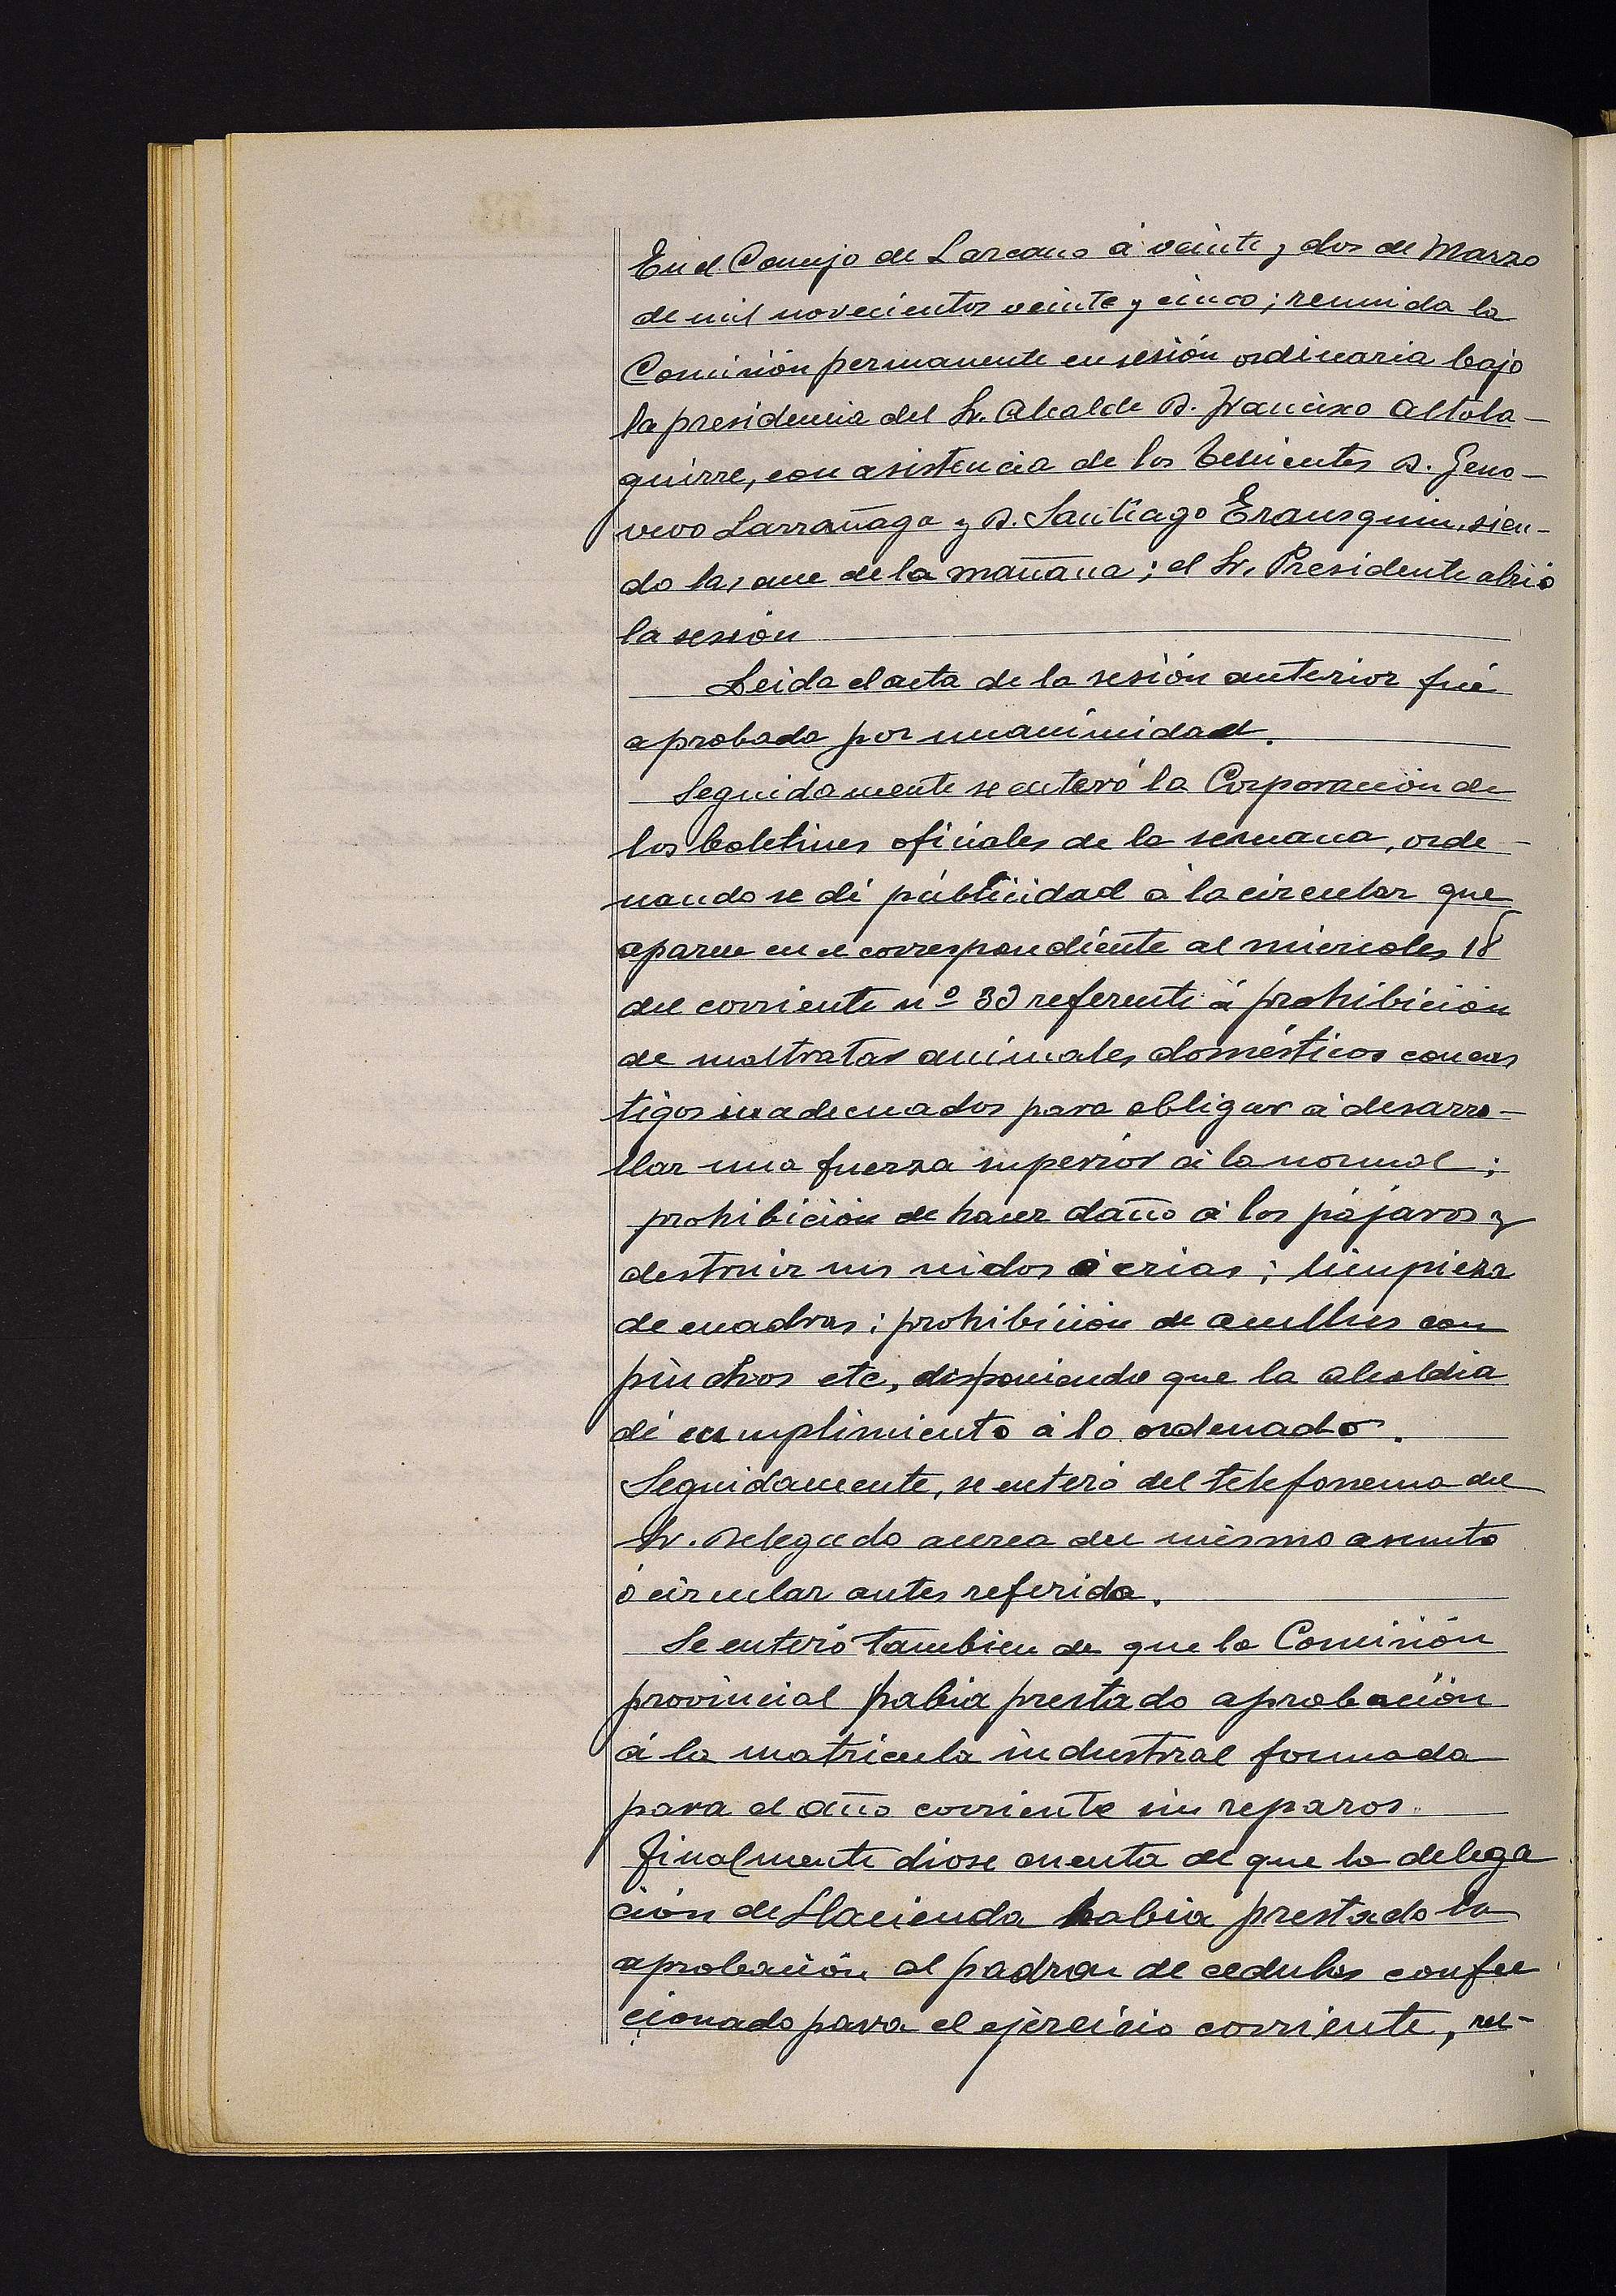 En el Concejo de Lazcano á veinte y dos de Marzo
de mil novecientos veinte y cinco; reunida la
Comisión permanente en sesión ordinaria bajo
la presidencia del Sr. Alcalde D. Francisco Altola-
guirre, con asistencia de los Tenientes D. Geno-
vevo Larrañaga y D. Santiago Erausquin, sien-
do las once de la mañana; el Sr. Presidente abrió
la sesión
Leida el acta de la sesión anterior fué
aprobada por unanimidad.
Seguidamente se enteró la Corporación de
los boletines oficiales de la semana, orde-
nando se dé publicidad á la circular que
aparece en el correspondiente al miercoles 18
del corriente nº 33 referente á prohibición
de maltratar animales domésticos con cas
tigos inadecuados para obligar á desarro-
llar una fuerza superior á la normal;
prohibición de hacer daño á los pájaros y
destruir sus nidos ó crias; limpieza
de cuadras; prohibición de acullus con
pinchos etc, disponiendo que la alcaldia
dé cumplimiento á lo ordenado.
Seguidamente, se enteró del telefonema del
Sr. Delegado acerca del mismo asunto
ó circular antes referida.
Se enteró tambien de que la Comisión
provincial habia prestado aprobación
á la matricula industrial formada
para el año corriente sin reparos.
Finalmente diose cuenta de que la delega
ción de Hacienda habia prestado la
aprobación al padron de cedulas confec
cionado para el ejercicio corriente, rec-